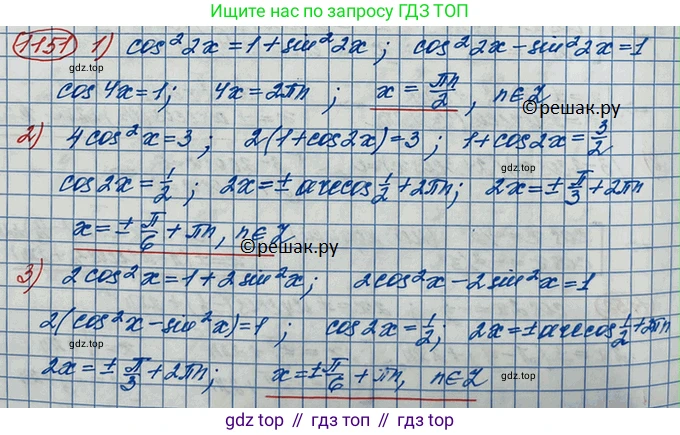 Ищите нас по запросу ГДЗ ТОП
1151 1) cos² 2x = 1 + sin² 2x ; cos² 2x - sin² 2x = 1
cos 4x = 1 ; 4x = 2πn ; x = πn/2 , n ∈ Z
©reшак.ру
2) 4cos² x = 3 ; 2(1 + cos 2x) = 3 ; 1 + cos 2x = 3/2
cos 2x = 1/2 ; 2x = ± arccos 1/2 + 2πn ; 2x = ± π/3 + 2πn
x = ± π/6 + πn , n ∈ Z
©reшак.ру
3) 2cos² x = 1 + 2 sin² x ; 2cos² x - 2 sin² x = 1
2(cos² x - sin² x) = 1 ; cos 2x = 1/2 ; 2x = ± arccos 1/2 + 2πn
2x = ± π/3 + 2πn ; x = ± π/6 + πn , n ∈ Z
gdz top // гдз топ // гдз.top